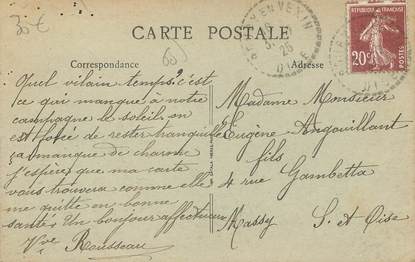 35€
CARTE POSTALE
Correspondance
Adresse
RÉPUBLIQUE FRANÇAISE
20c
Quel vilain temps ? c'est
ce qui manque à notre
campagne le soleil, on
est forcé de rester tranquille
ça manque de charme
j'espère que ma carte
vous trouvera comme elle
me quitte en bonne
santé, Un bonjour affectueux
Vve Rousseau
Madame Monsieur
Eugène Angouillant
fils
4 rue Gambetta
Massy S. et Oise